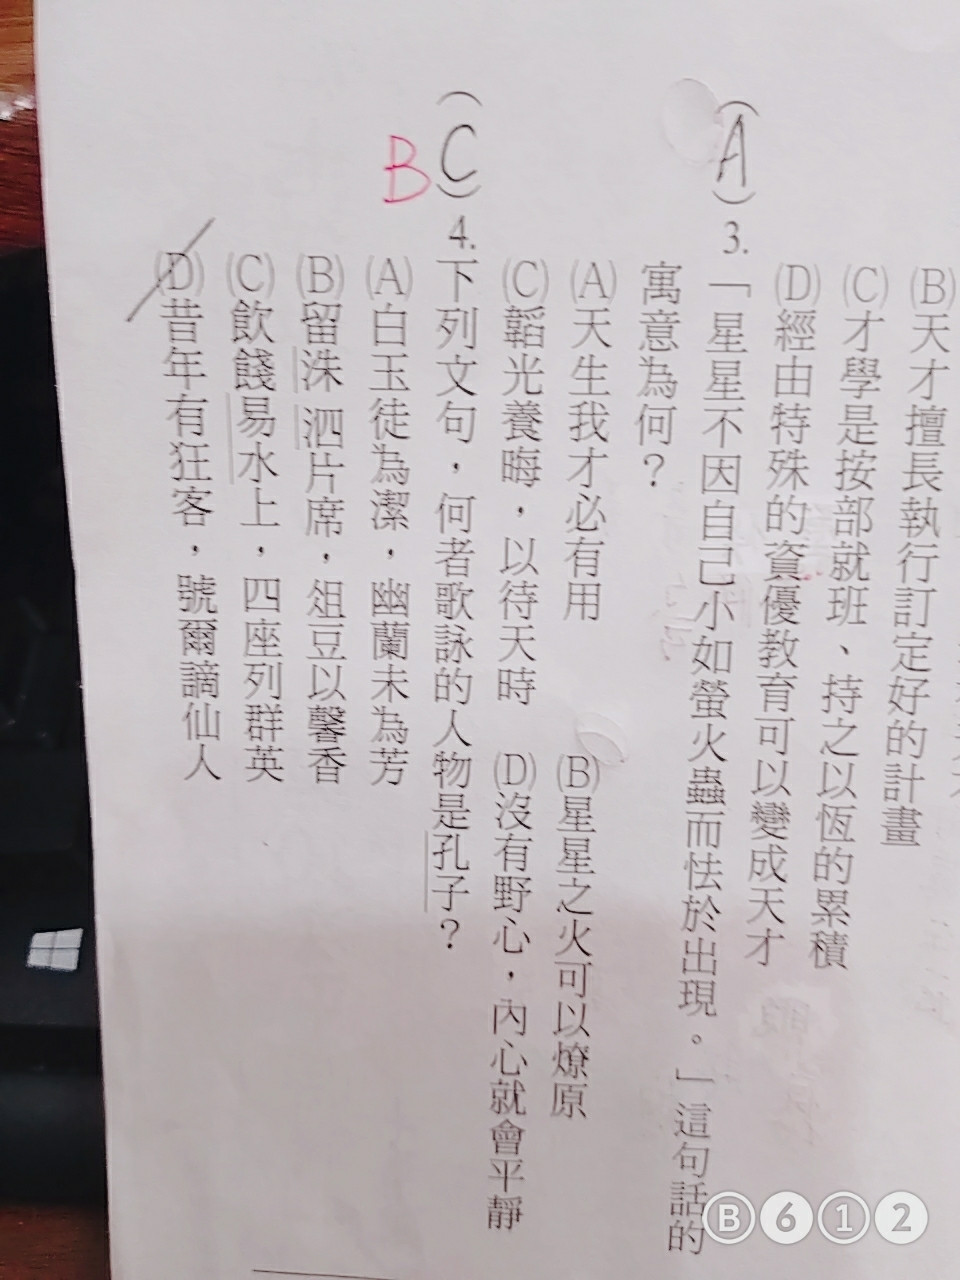 (B)天才擅長執行訂定好的計畫
(C)才學是按部就班、持之以恆的累積
(D)經由特殊的資優教育可以變成天才
(A)3.「星星不因自己小如螢火蟲而怯於出現。」這句話的
寓意為何？
(A)天生我才必有用 (B)星星之火可以燎原
(C)韜光養晦，以待天時 (D)沒有野心，內心就會平靜
(C)4.下列文句，何者歌詠的人物是孔子？
B
(A)白玉徒為潔，幽蘭未為芳
(B)留洙 泗片席，俎豆以馨香
(C)飲餞易水上，四座列群英
(D)昔年有狂客，號爾謫仙人
B612